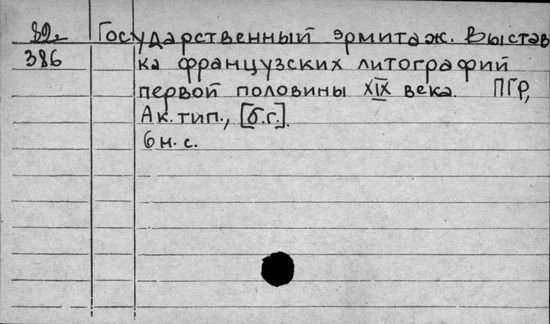 82г Государственный эрмитаж. Выстав
386 ка французских литографий
первой половины XIX века. ПГР,
Ак. тип., [б.г.].
6 н. с.